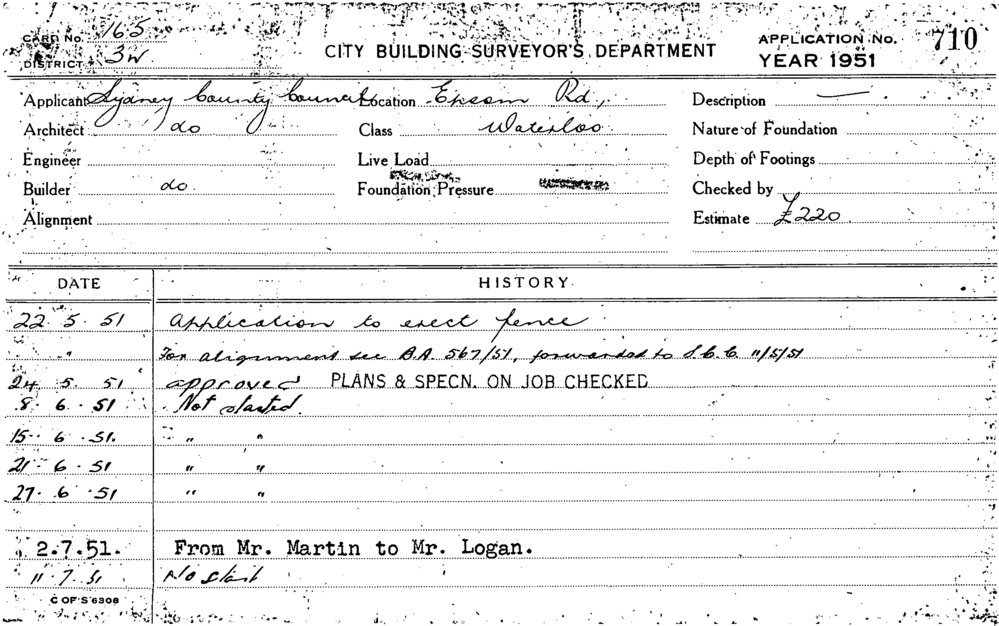 CARD No. 165
DISTRICT 3W
CITY BUILDING SURVEYOR'S DEPARTMENT
APPLICATION No. 710
YEAR 1951
Applicant Sydney County Council Location Epsom Rd, Description —
Architect do Class Waterloo Nature of Foundation
Engineer Live Load Depth of Footings
Builder do Foundation Pressure Checked by
Alignment Estimate £220
DATE HISTORY
22.5.51 Application to erect fence
" For alignment see B.A. 567/51, forwarded to S.C.C. 11/5/51
24.5.51 approved PLANS & SPECN. ON JOB CHECKED
8.6.51 Not started.
15.6.51. " "
21.6.51 " "
27.6.51 " "
2.7.51. From Mr. Martin to Mr. Logan.
11.7.51 No start
C OF S 6308